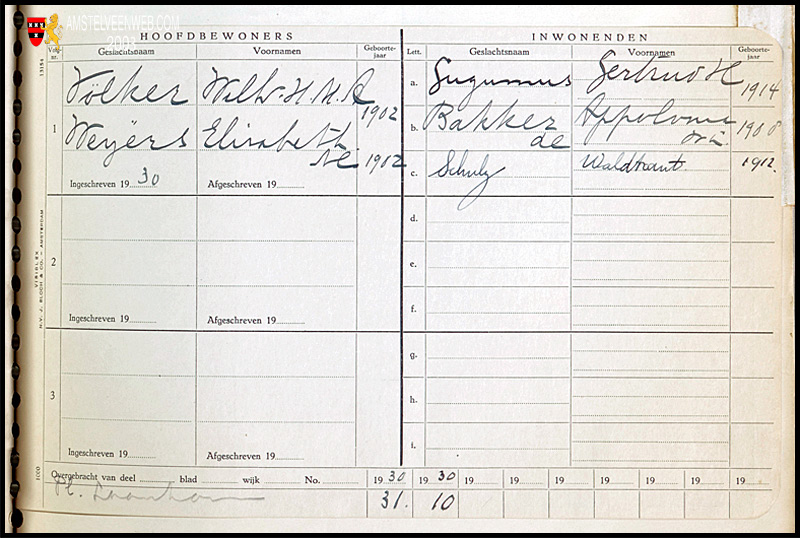 AMSTELVEENWEB.COM
2003
HOOFDBEWONERS INWONENDEN
Volg- nr. Geslachtsnaam Voornamen Geboorte- jaar Lett. Geslachtsnaam Voornamen Geboorte- jaar
1 Völker Wilh. H. M. A 1902 a. Gertrud H 1914
Weyërs Elisabeth 1902 b. Bakker de 1908
c. Schulz Waldtraut 1912.
Ingeschreven 19 30 Afgeschreven 19
d.
2 e.
f.
Ingeschreven 19 Afgeschreven 19
g.
3 h.
i.
Ingeschreven 19 Afgeschreven 19
Overgebracht van deel blad wijk No. 19 30 19 30 19 19 19 19 19 19 19
Pl. 31. 10
13154
VISIDLEX AMSTERDAM
N.V. J. BLOCH & CO.